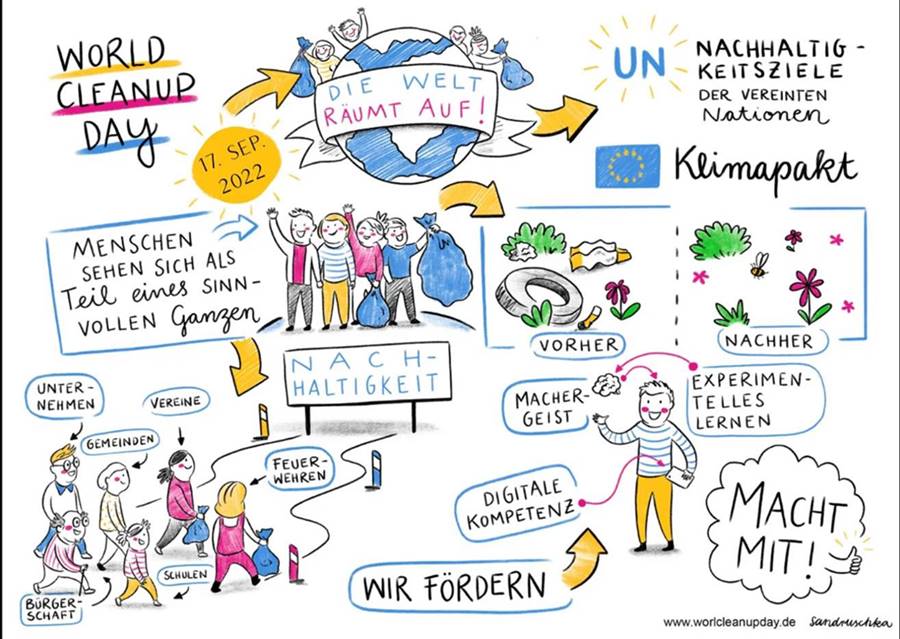 WORLD
CLEANUP
DAY
17. SEP.
2022
DIE WELT
RÄUMT AUF!
UN
NACHHALTIG-
KEITSZIELE
DER VEREINTEN
Nationen
Klimapakt
MENSCHEN
SEHEN SICH ALS
Teil eines SINN-
VOLLEN Ganzen
VORHER
NACHHER
NACH-
HALTIGKEIT
UNTER-
NEHMEN
GEMEINDEN
VEREINE
FEUER-
WEHREN
SCHULEN
BÜRGER-
SCHAFT
MACHER-
GEIST
EXPERIMEN-
TELLES
LERNEN
DIGITALE
KOMPETENZ
WIR FÖRDERN
MACHT
MIT!
www.worlcleanupday.de
sandruschka